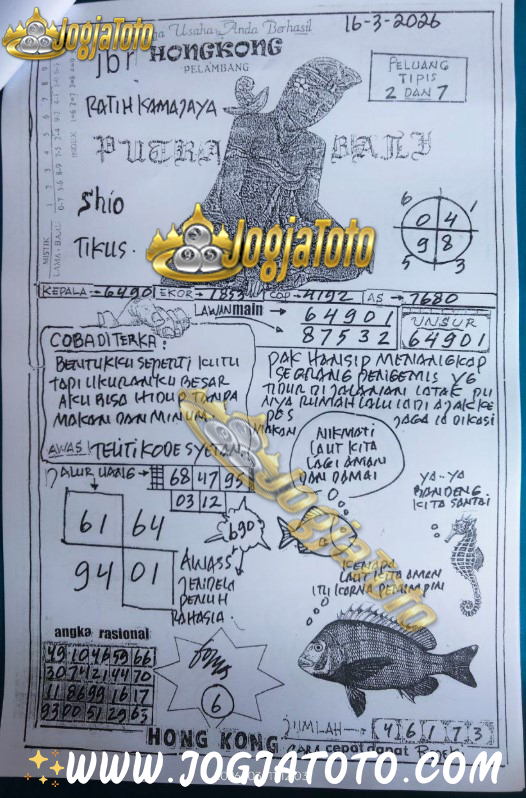 JogjaToto
Usaha Anda Berhasil
16-3-2026
jbr
HONGKONG
PELAMBANG
PELUANG
TIPIS
2 DAN 7
RATIH KAMAJAYA
PUTRA BALI
Shio
TIKUS.
6 1
0 4
9 8
5 3
JogjaToto
KEPALA 6490
EKOR 7853
COP 4192
AS 7680
LAWAN main
64901
87532
UNSUR
64901
COBA DITERKA:
BENTUKKU SEPERTI KUTU
TAPI UKURANKU BESAR
AKU BISA HIDUP TANPA
MAKAN DAN MINUM
AWAS! TELITI KODE SYETAN
PAK HANSIP MENANGKAP
SEORANG PENGEMIS YG
TIDUR DI JALANAN
NYA RUMAH LALU
POS
JAGA
MAKAN
NIKMATI
LAUT KITA
LAGI AMAN
DAN DAMAI
YA..YA
BANDENG.
KITA SANTAI
JALUR UANG
68 47 95
03 12
61 64
94 01
690
AWASS
JENDELA
PENUH
RAHASIA.
KENAPA
LAUT KITA AMAN
JogjaToto
angka rasional
49 10 46 59 66
30 74 21 44 70
11 86 99 16 17
93 00 51 29 63
6
JUMLAH
4 6 1 7 3
HONG KONG
CARA cepat dapat
WWW.JOGJATOTO.COM